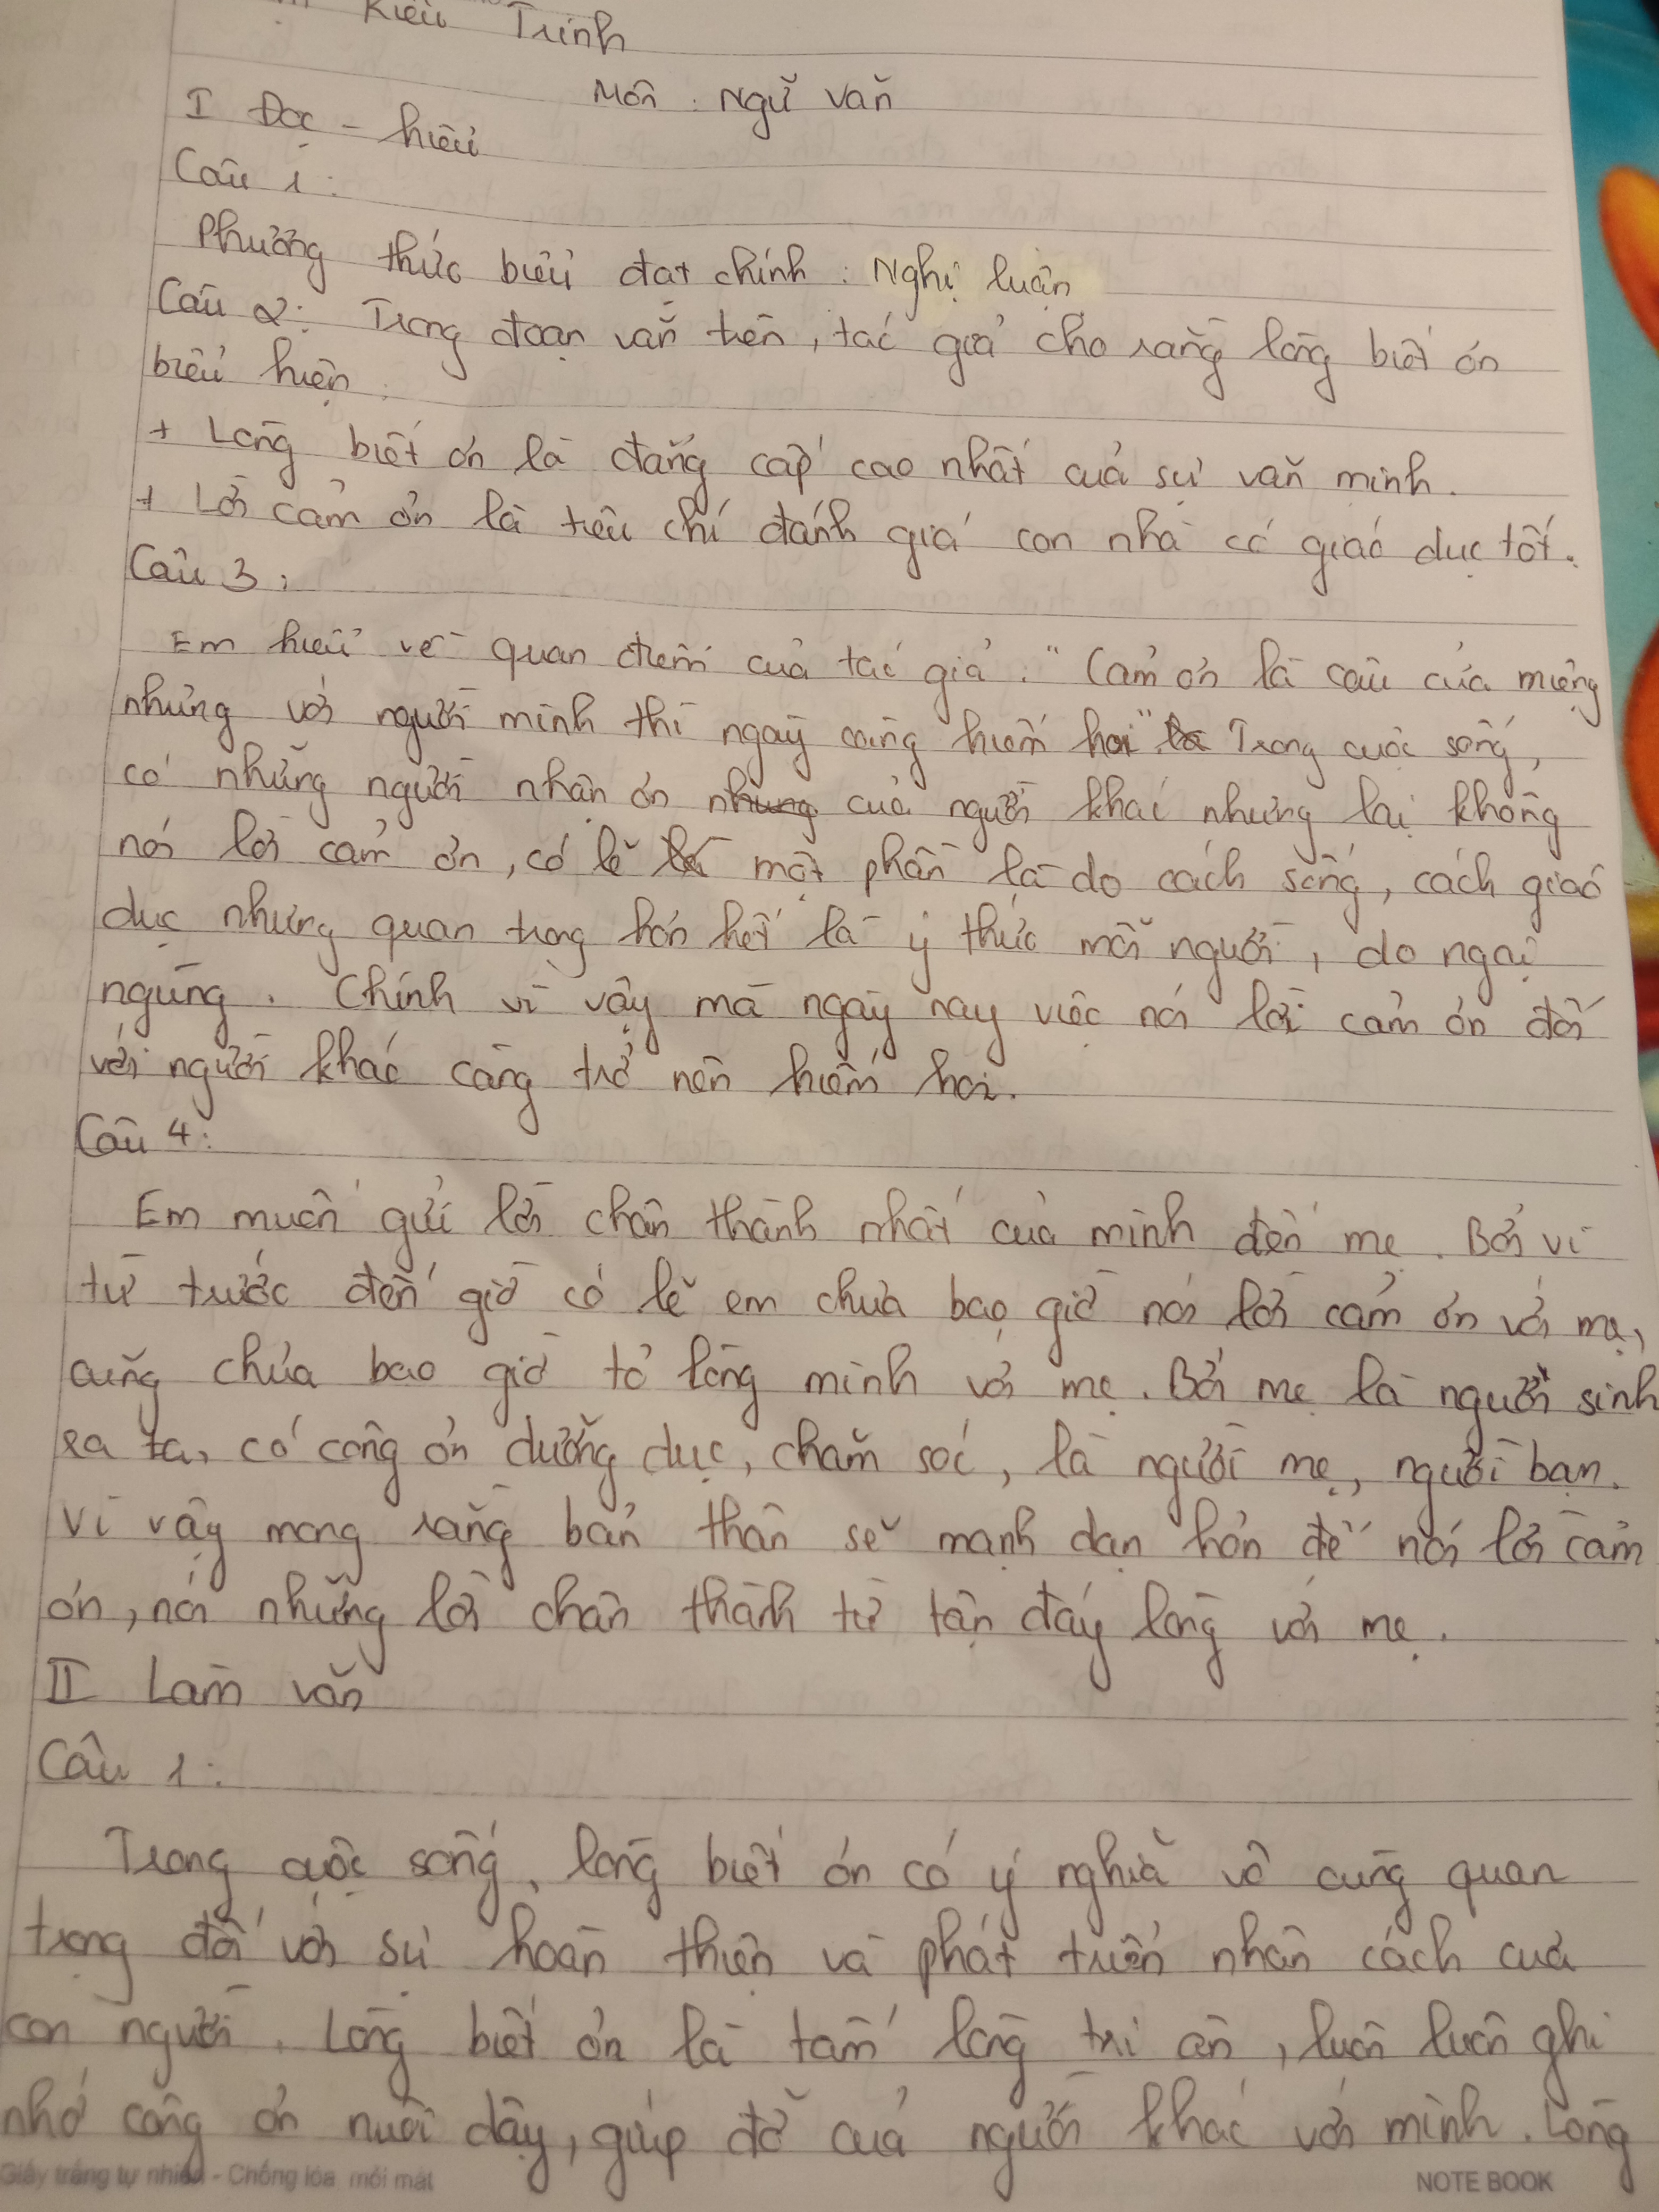 Kiều Trinh
Môn : Ngữ văn
I Đọc - hiểu
Câu 1 :
Phương thức biểu đạt chính : Nghị luận
Câu 2 : Trong đoạn văn trên, tác giả cho rằng lòng biết ơn
biểu hiện :
+ Lòng biết ơn là đẳng cấp cao nhất của sự văn minh.
+ Lời cảm ơn là tiêu chí đánh giá con nhà có giáo dục tốt.
Câu 3 :
Em hiểu về quan điểm của tác giả : " Cảm ơn là câu cửa miệng
nhưng với người mình thì ngày càng hiếm hoi" Trong cuộc sống,
có những người nhận ơn của người khác nhưng lại không
nói lời cảm ơn, có lẽ một phần là do cách sống, cách giáo
dục nhưng quan trọng hơn hết là ý thức mỗi người, do ngại
ngùng. Chính vì vậy mà ngày nay việc nói lời cảm ơn đối
với người khác càng trở nên hiếm hoi.
Câu 4 :
Em muốn gửi lời chân thành nhất của mình đến mẹ. Bởi vì
từ trước đến giờ có lẽ em chưa bao giờ nói lời cảm ơn với mẹ,
cũng chưa bao giờ tỏ lòng mình với mẹ. Bởi mẹ là người sinh
ra ta, có công ơn dưỡng dục, chăm sóc, là người mẹ, người bạn.
Vì vậy mong rằng bản thân sẽ mạnh dạn hơn để nói lời cảm
ơn, nói những lời chân thành từ tận đáy lòng với mẹ.
II Làm văn
Câu 1 :
Trong cuộc sống, lòng biết ơn có ý nghĩa vô cùng quan
trọng đối với sự hoàn thiện và phát triển nhân cách của
con người. Lòng biết ơn là tấm lòng tri ân, luôn luôn ghi
nhớ công ơn nuôi dạy, giúp đỡ của người khác với mình. Lòng
Giấy trắng tự nhiên - Chống lóa mỏi mắt NOTE BOOK